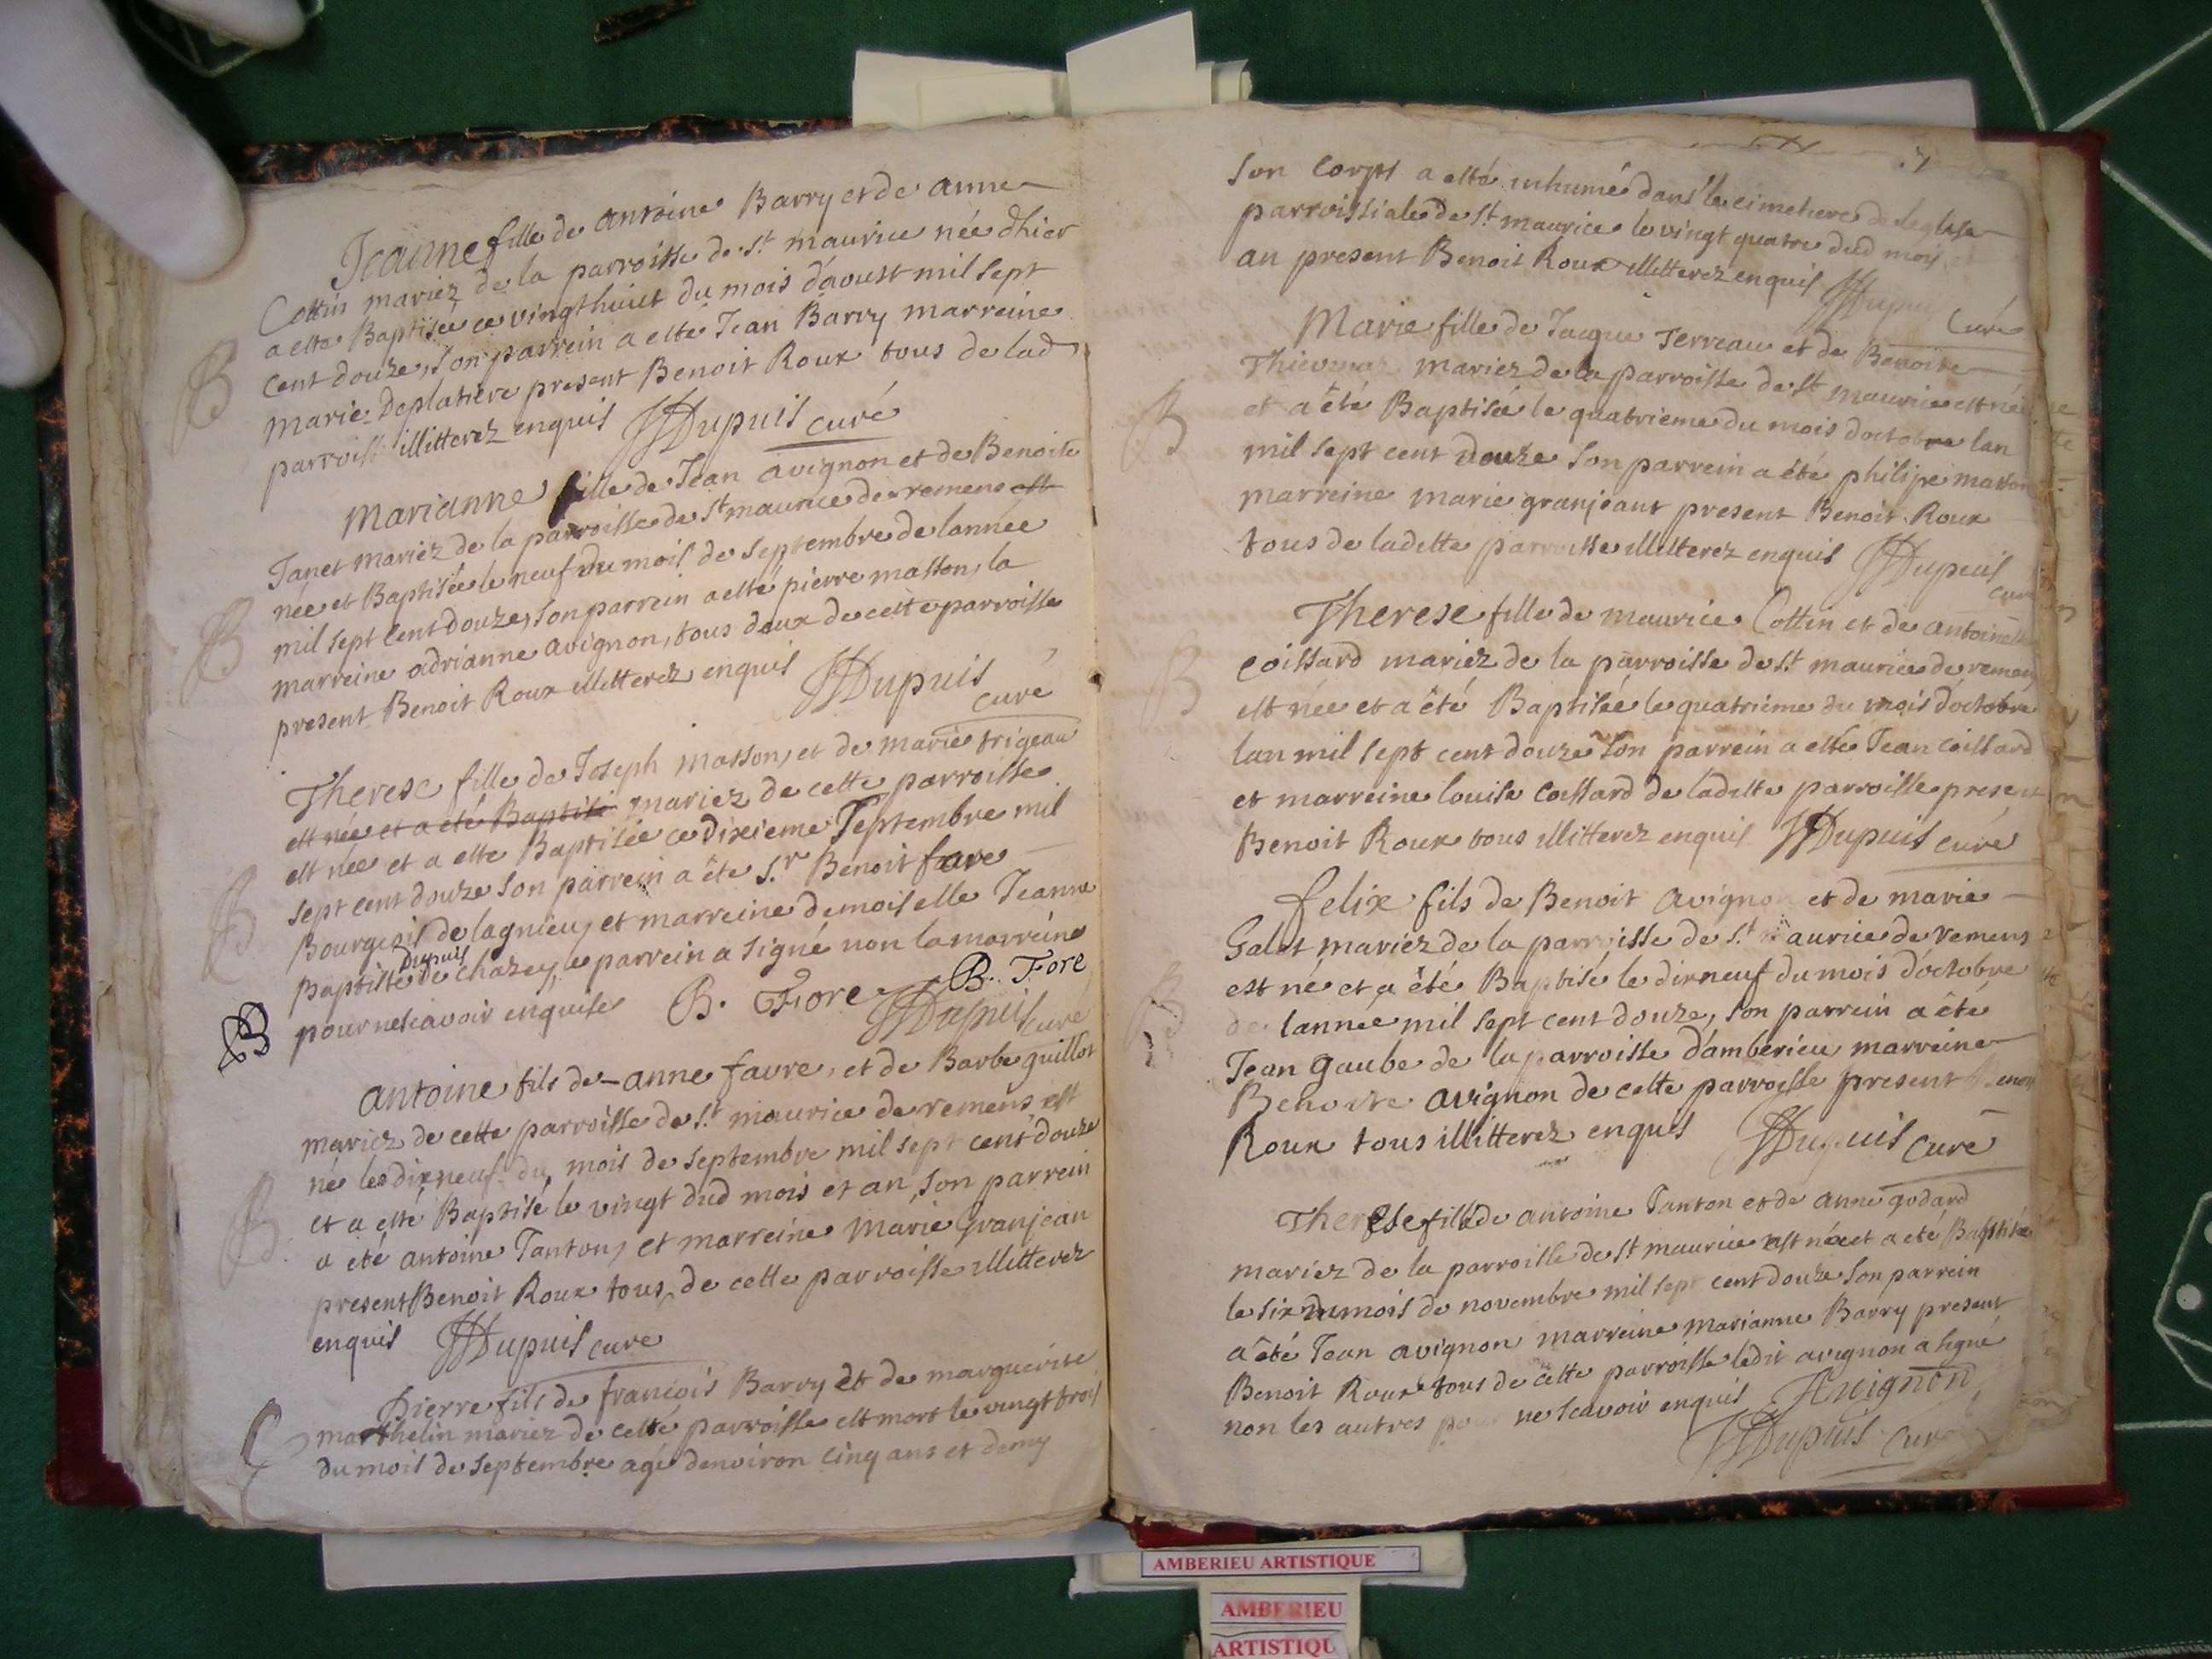 Jeanne fille de antoine Barry et de anne
Cottin mariez de la parroisse de St maurice née dhier
a esté Baptisée ce vingthuict du mois daoust mil sept
cent douze, son parrein a esté Jean Barry marreine
marie Deplatiere present Benoit Roux tous de lad
parroisse illitterez enquis JJDupuis curé
B
marianne fille de Jean avignon et de Benoite
Janet mariez de la parroisse de St maurice de remens est
née et Baptisée le neuf du mois de septembre de lannée
mil sept cent douze, son parrein a esté pierre masson, la
marreine adrianne avignon, tous deux de cette parroisse
present Benoit Roux illitterez enquis JJDupuis
curé
B
Therese fille de Joseph masson, et de marie trigeau
est née et a été Baptisé mariez de cette parroisse
est née et a esté Baptisée ce Dixieme Septembre mil
sept cent douze son parrein a été Sr Benoit fore
Bourgeois de lagnieu, et marreine demoiselle Jeanne
Dupuis
Baptiste de chazey, le parrein a signé non la marreine
pour ne scavoir enquise B. Fore B. Fore
JJDupuis curé
B
B
antoine fils de anne favre, et de Barbe guillot
mariez de cette parroisse de St maurice de remens est
né le dixneuf du mois de septembre mil sept cent douze
et a esté Baptisé le vingt dud mois et an, son parrein
a été antoine Tanton, et marreine marie granjean
present Benoit Roux tous de cette parroisse illitterez
enquis JJDupuis curé
B
Pierre fils de francois Barry et de marguerite
marthelin mariez de cette parroisse est mort le vingt trois
du mois de septembre agé denviron cinq ans et demy
son corps a esté inhumé dans le cimetiere de leglise
parroissiale de St maurice le vingt quatre dud mois
an present Benoit Roux illitterez enquis JJDupuis
curé
Marie fille de Jacque Terreau et de Benoite
mariez de la parroisse de St maurice est née
et a été Baptisée le quatrieme du mois doctobre lan
mil sept cent douze son parrein a été philipe masson
marreine marie granjeant present Benoit Roux
tous de ladette parroisse illitterez enquis JJDupuis
curé
B
Therese fille de maurice Cottin et de antoinette
coissard mariez de la parroisse de St maurice de remens
est née et a été Baptisée le quatriéme du mois doctobre
lan mil sept cent douze son parrein a esté Jean coissard
et marreine louise coissard de ladette parroisse present
Benoit Roux tous illitterez enquis JJDupuis curé
B
felix fils de Benoit avignon et de marie
Galet mariez de la parroisse de St maurice de remens
est né et a été Baptisé le dixneuf du mois doctobre
de lannee mil sept cent douze, son parrein a été
Jean Gaube de la parroisse d'amberieu marreine
Benoite avignon de cette parroisse present Benoit
Roux tous illitterez enquis JJDupuis curé
B
Therese fille de antoine Tanton et de anne godard
mariez de la parroisse de St maurice est née et a eté Baptisée
le six du mois de novembre mil sept cent douze son parrein
a été Jean avignon marreine marianne Barry present
Benoit Roux tous de cette parroisse ledit avignon a signé
non les autres pour ne scavoir enquis JAvignon
JJDupuis curé
AMBERIEU ARTISTIQUE
AMBERIEU
ARTISTIQU